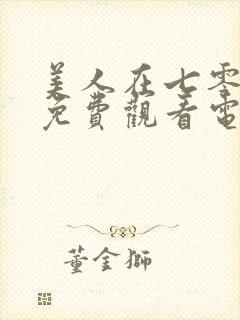 美人在七零
免費觀看電
董金獅